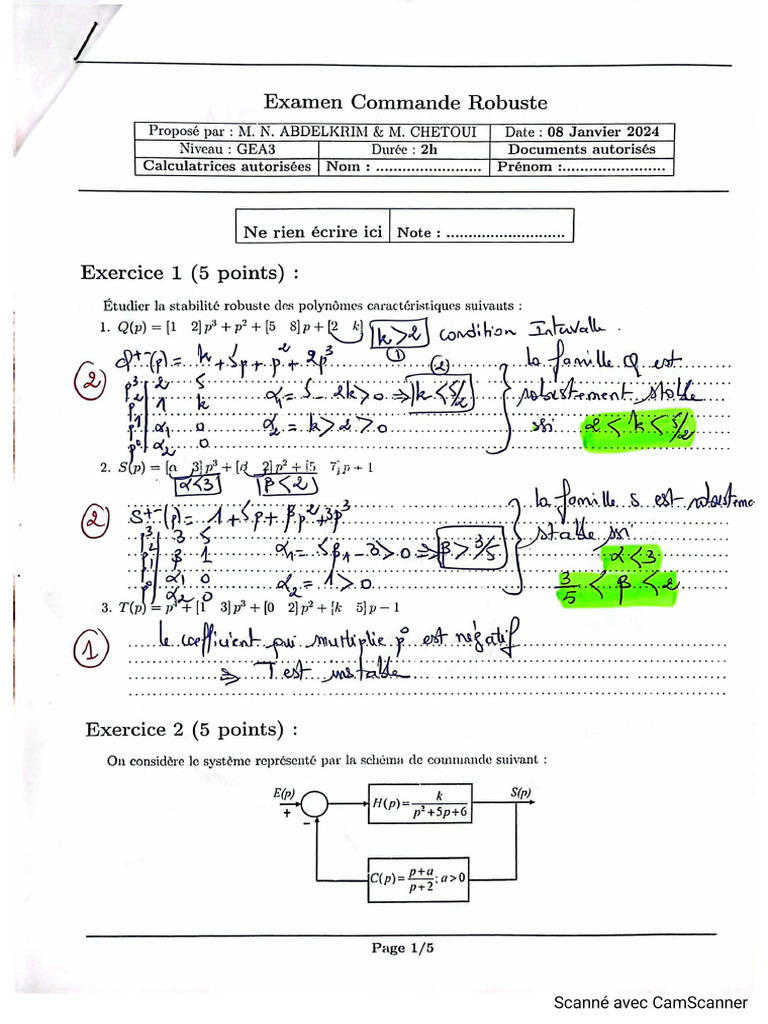 Examen Commande Robuste
Proposé par : M. N. ABDELKRIM & M. CHETOUI Date : 08 Janvier 2024
Niveau : GEA3 Durée : 2h Documents autorisés
Calculatrices autorisées Nom : ........................ Prénom :.......................
Ne rien écrire ici Note : ...........................
Exercice 1 (5 points) :
Étudier la stabilité robuste des polynômes caractéristiques suivants :
1. Q(p) = [1 2] p³ + p² + [5 8] p + [2 k] k > 2 condition Intervalle .
(1)
Q⁺⁻(p) = k + 5p + p² + 2p³ (2) la famille Q est
2 p³ 2 5 α₁ = 5 - 2k > 0 ⇒ k < 5/2 robustement stable
p² 1 k
p¹ α₁ 0 α₂ = k > 2 > 0 ssi 2 < k < 5/2
p⁰ α₂ 0
2. S(p) = [α 3] p³ + [β 2] p² + [5 7] p + 1
α < 3 β < 2
2 S⁺⁻(p) = 1 + 5p + βp² + 3p³ la famille S est robusteme
p³ 3 5 stable ssi
p² β 1 α₁ = 5β - 3 > 0 ⇒ β > 3/5 α < 3
p¹ α₁ 0
p⁰ α₂ 0 α₂ = 1 > 0 3/5 < β < 2
3. T(p) = p⁴ + [1 3] p³ + [0 2] p² + [k 5] p − 1
1 le coefficient qui multiplie p⁰ est négatif
⇒ T est instable
Exercice 2 (5 points) :
On considère le système représenté par la schéma de commande suivant :
E(p) + − H(p)= k/(p²+5p+6) S(p)
C(p)= (p+a)/(p+2) ; a>0
Page 1/5
Scanné avec CamScanner